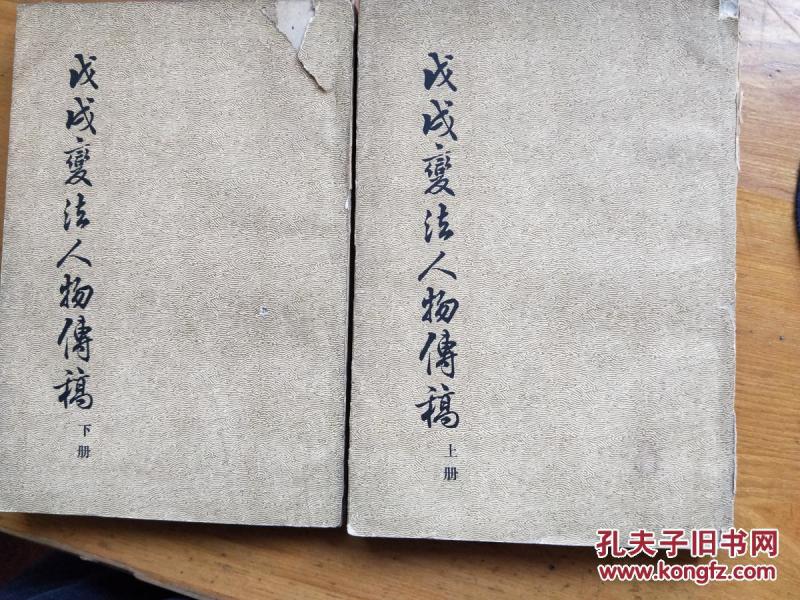 戊戌變法人物傳稿
下册
戊戌變法人物傳稿
上册
孔夫子旧书网
www.kongfz.com